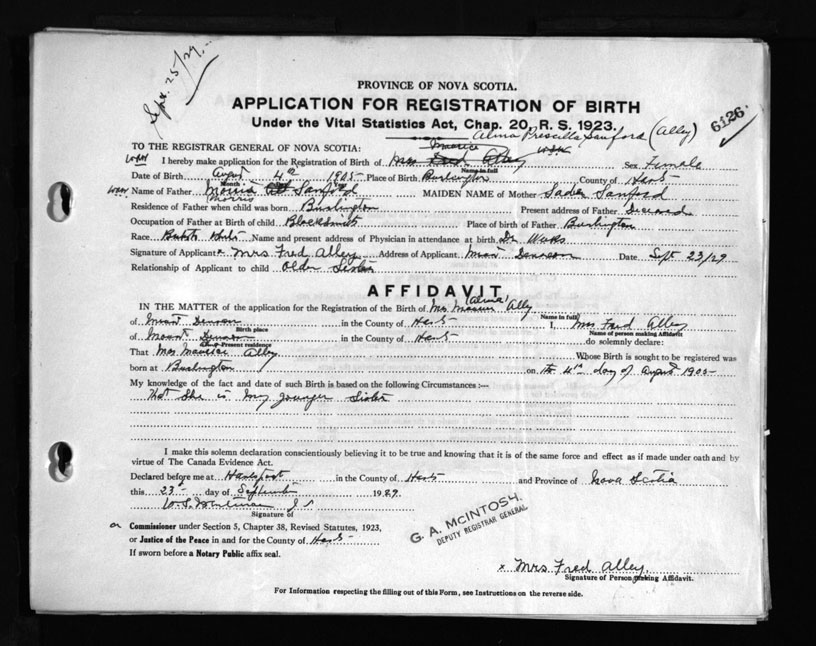 Sept. 25/29.
PROVINCE OF NOVA SCOTIA.
APPLICATION FOR REGISTRATION OF BIRTH
Under the Vital Statistics Act, Chap. 20, R. S. 1923.
6126.
Alma Prescilla Sanford (Alley)
TO THE REGISTRAR GENERAL OF NOVA SCOTIA: Maurice
I hereby make application for the Registration of Birth of Mrs Fred Alley Sex Female
Name in full
Date of Birth August 4th 1905 Place of Birth Burlington County of Hants
Month
Name of Father Sanford MAIDEN NAME of Mother Sadie Sanford
Morris
Residence of Father when child was born Burlington Present address of Father Deceased
Occupation of Father at Birth of child Blacksmith Place of birth of Father Burlington
Race Name and present address of Physician in attendance at birth Dr
Signature of Applicant x Mrs Fred Alley Address of Applicant Mount Denson Date Sept 23/29
Relationship of Applicant to child Older Sister
AFFIDAVIT
(Alma)
IN THE MATTER of the application for the Registration of the Birth of Mrs Alley
Name in full
of Mount Denson in the County of Hants I, Mrs Fred Alley
Birth place Name of person making Affidavit
of Mount Denson in the County of Hants do solemnly declare:
Present residence
That Mrs Alley Whose Birth is sought to be registered was
born at Burlington on the 4th day of August 1905
My knowledge of the fact and date of such Birth is based on the following Circumstances :--
that she is my younger Sister
I make this solemn declaration conscientiously believing it to be true and knowing that it is of the same force and effect as if made under oath and by
virtue of The Canada Evidence Act.
Declared before me at Hantsport in the County of Hants and Province of Nova Scotia
this 23 day of September 1929.
Signature of
G. A. McINTOSH,
DEPUTY REGISTRAR GENERAL
a Commissioner under Section 5, Chapter 38, Revised Statutes, 1923,
or Justice of the Peace in and for the County of Hants
If sworn before a Notary Public affix seal.
x Mrs Fred Alley.
Signature of Person making Affidavit.
For Information respecting the filling out of this Form, see Instructions on the reverse side.